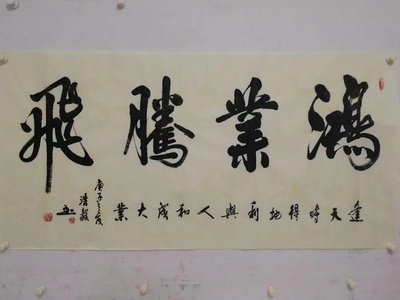 鴻業騰飛
逢天時得地利與人和成大業
庚子之夏
浩毅書